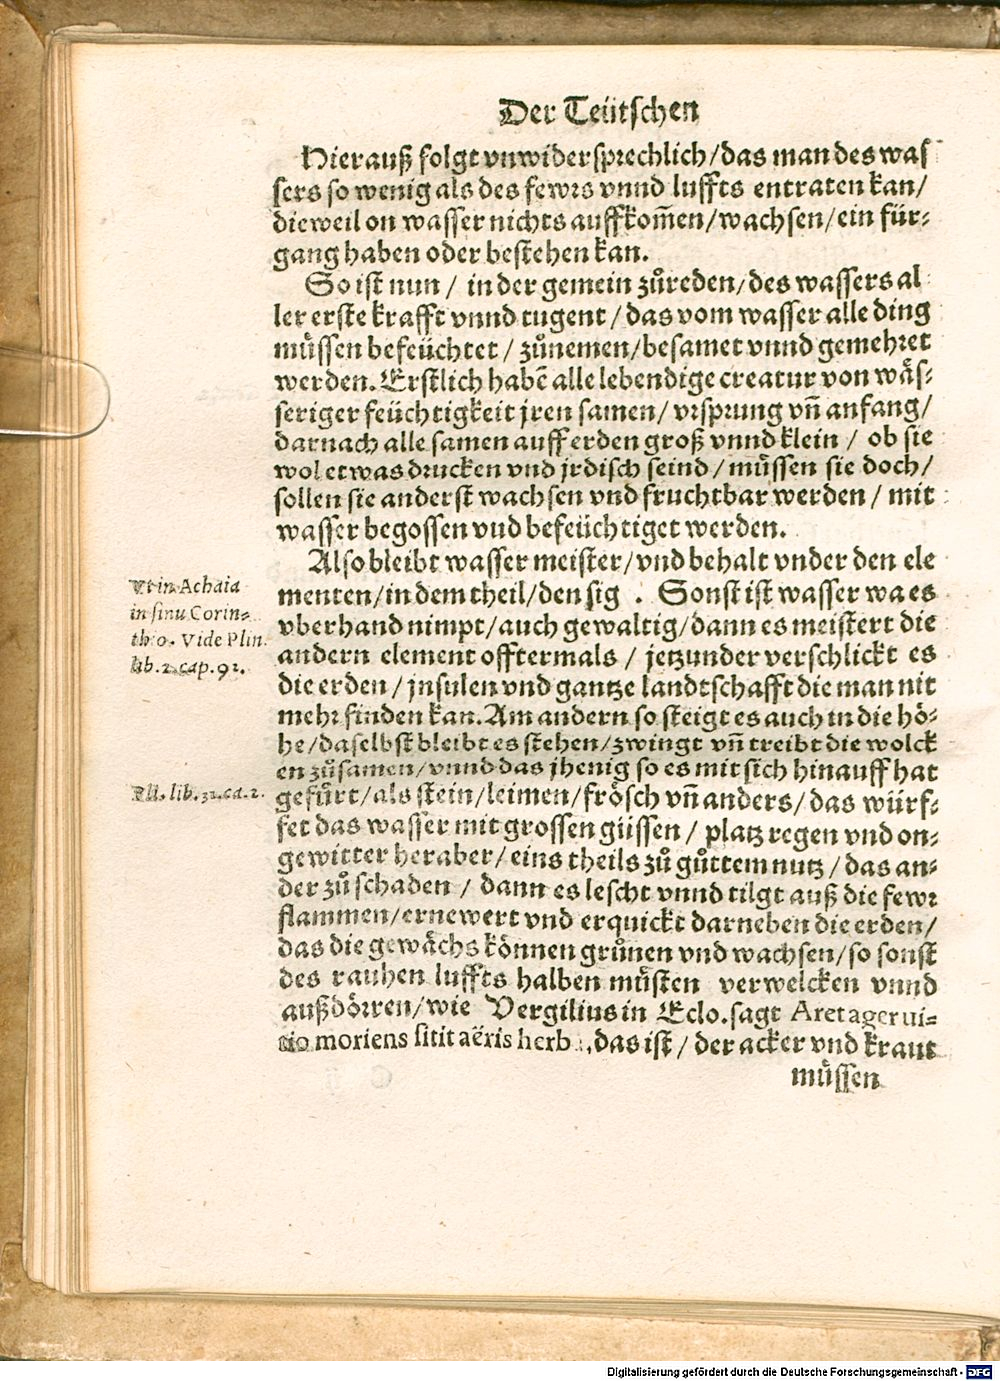 Der Teütschen
Hierauß folgt vnwidersprechlich/das man des was
sers so wenig als des fewrs vnnd luffts entraten kan/
dieweil on wasser nichts auffkom̄en/wachsen/ein für⸗
gang haben oder bestehen kan.
So ist nun / in der gemein zůreden/des wassers al
ler erste krafft vnnd tugent / das vom wasser alle ding
müssen befeüchtet / zůnemen/besamet vnnd gemehret
werden. Erstlich habē alle lebendige creatur von wäs⸗
seriger feüchtigkeit jren samen/ vrsprung vn̄ anfang/
darnach alle samen auff erden groß vnnd klein / ob sie
wol etwas drucken vnd jrdisch seind / müssen sie doch/
sollen sie anderst wachsen vnd fruchtbar werden / mit
wasser begossen vud befeüchtiget werden.
Also bleibt wasser meister/vnd behalt vnder den ele
menten/in dem theil/den sig . Sonst ist wasser wa es
vberhand nimpt/auch gewaltig/dann es meistert die
andern element offtermals / jetzunder verschlickt es
die erden / jnsulen vnd gantze landtschafft die man nit
mehr finden kan. Am andern so steigt es auch in die hö⸗
he/daselbst bleibt es stehen/zwingt vn̄ treibt die wolck
en zůsamen/vnnd das jhenig so es mit sich hinauff hat
gefůrt/als stein/leimen/frösch vn̄ anders/das würf⸗
fet das wasser mit grossen güssen / platz regen vnd on⸗
gewitter heraber/eins theils zů gůttem nutz / das an⸗
der zů schaden / dann es lescht vnnd tilgt auß die fewr
flammen/ernewert vnd erquickt darneben die erden/
das die gewächs können grůnen vnd wachsen/so sonst
des rauhen luffts halben müsten verwelcken vnnd
außdörren/wie Vergilius in Eclo. sagt Aret ager ui⸗
tio moriens sitit aëris herb , das ist / der acker vnd kraut
müssen
Vt in Achaia
in sinu Corin⸗
tho. Vide Plin.
lib. 2. cap. 92.
Pli. lib. 31. ca. 1.
Digitalisierung gefördert durch die Deutsche Forschungsgemeinschaft - DFG